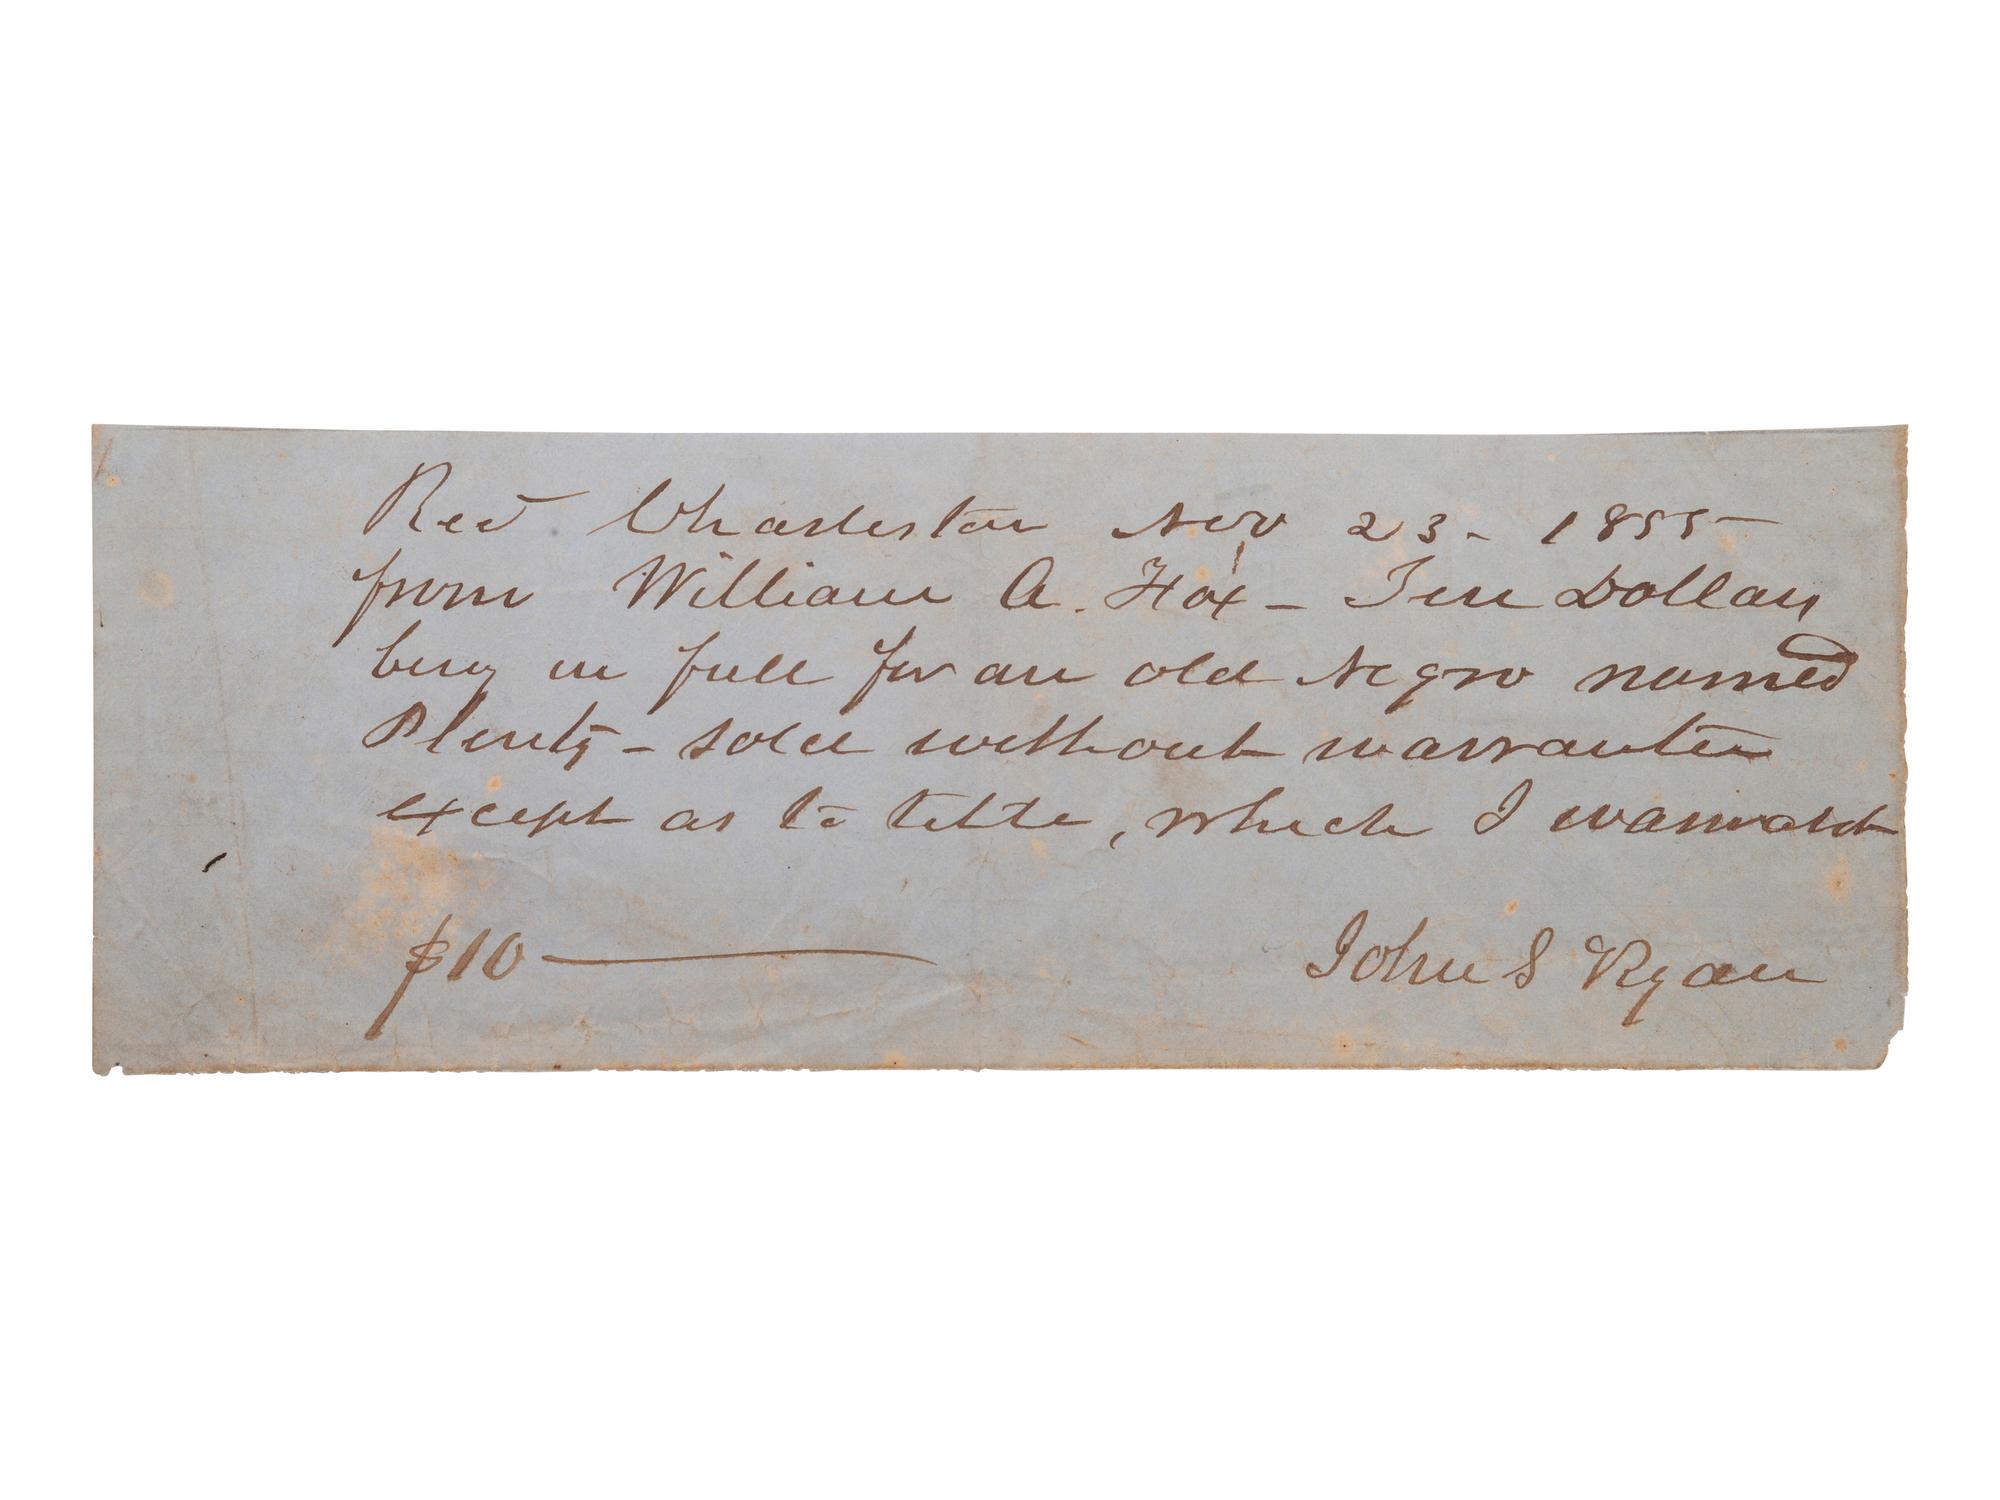 Recd Charleston Nov 23 - 1855 -
from William A. Fox - Ten Dollars
being in full for an old Negro named
Plenty - sold without warrantee
except as to title, which I warrant
$10 —
John S Ryan